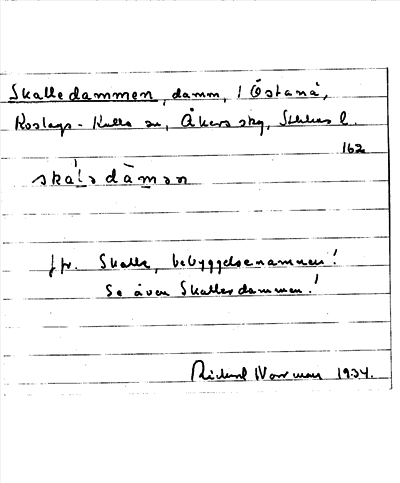 Skalledammen, damm, i Östanå,
Roslags-Kulla sn, Åkers skg, Sthlms l.
162
skal`ədàmən
Jfr. Skalle, bebyggelsenamnen!
Se även Skallerdammen!
Rickard Norrman 1934.